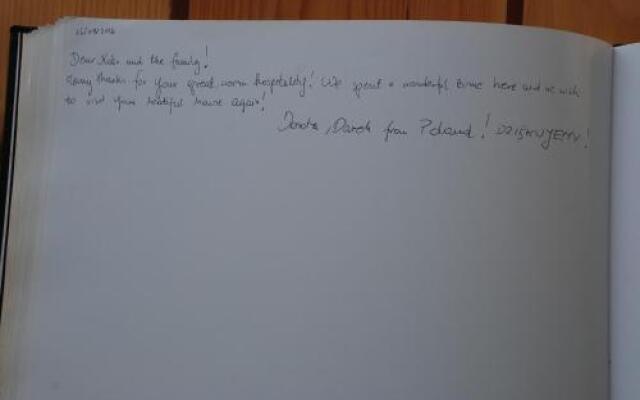 Dear and the family!
Many thanks for your great, warm hospitality! We spent a wonderful time here and we wish
to visit your beautiful house again!
Dorota, Darek from Poland! DZIĘKUJEMY!